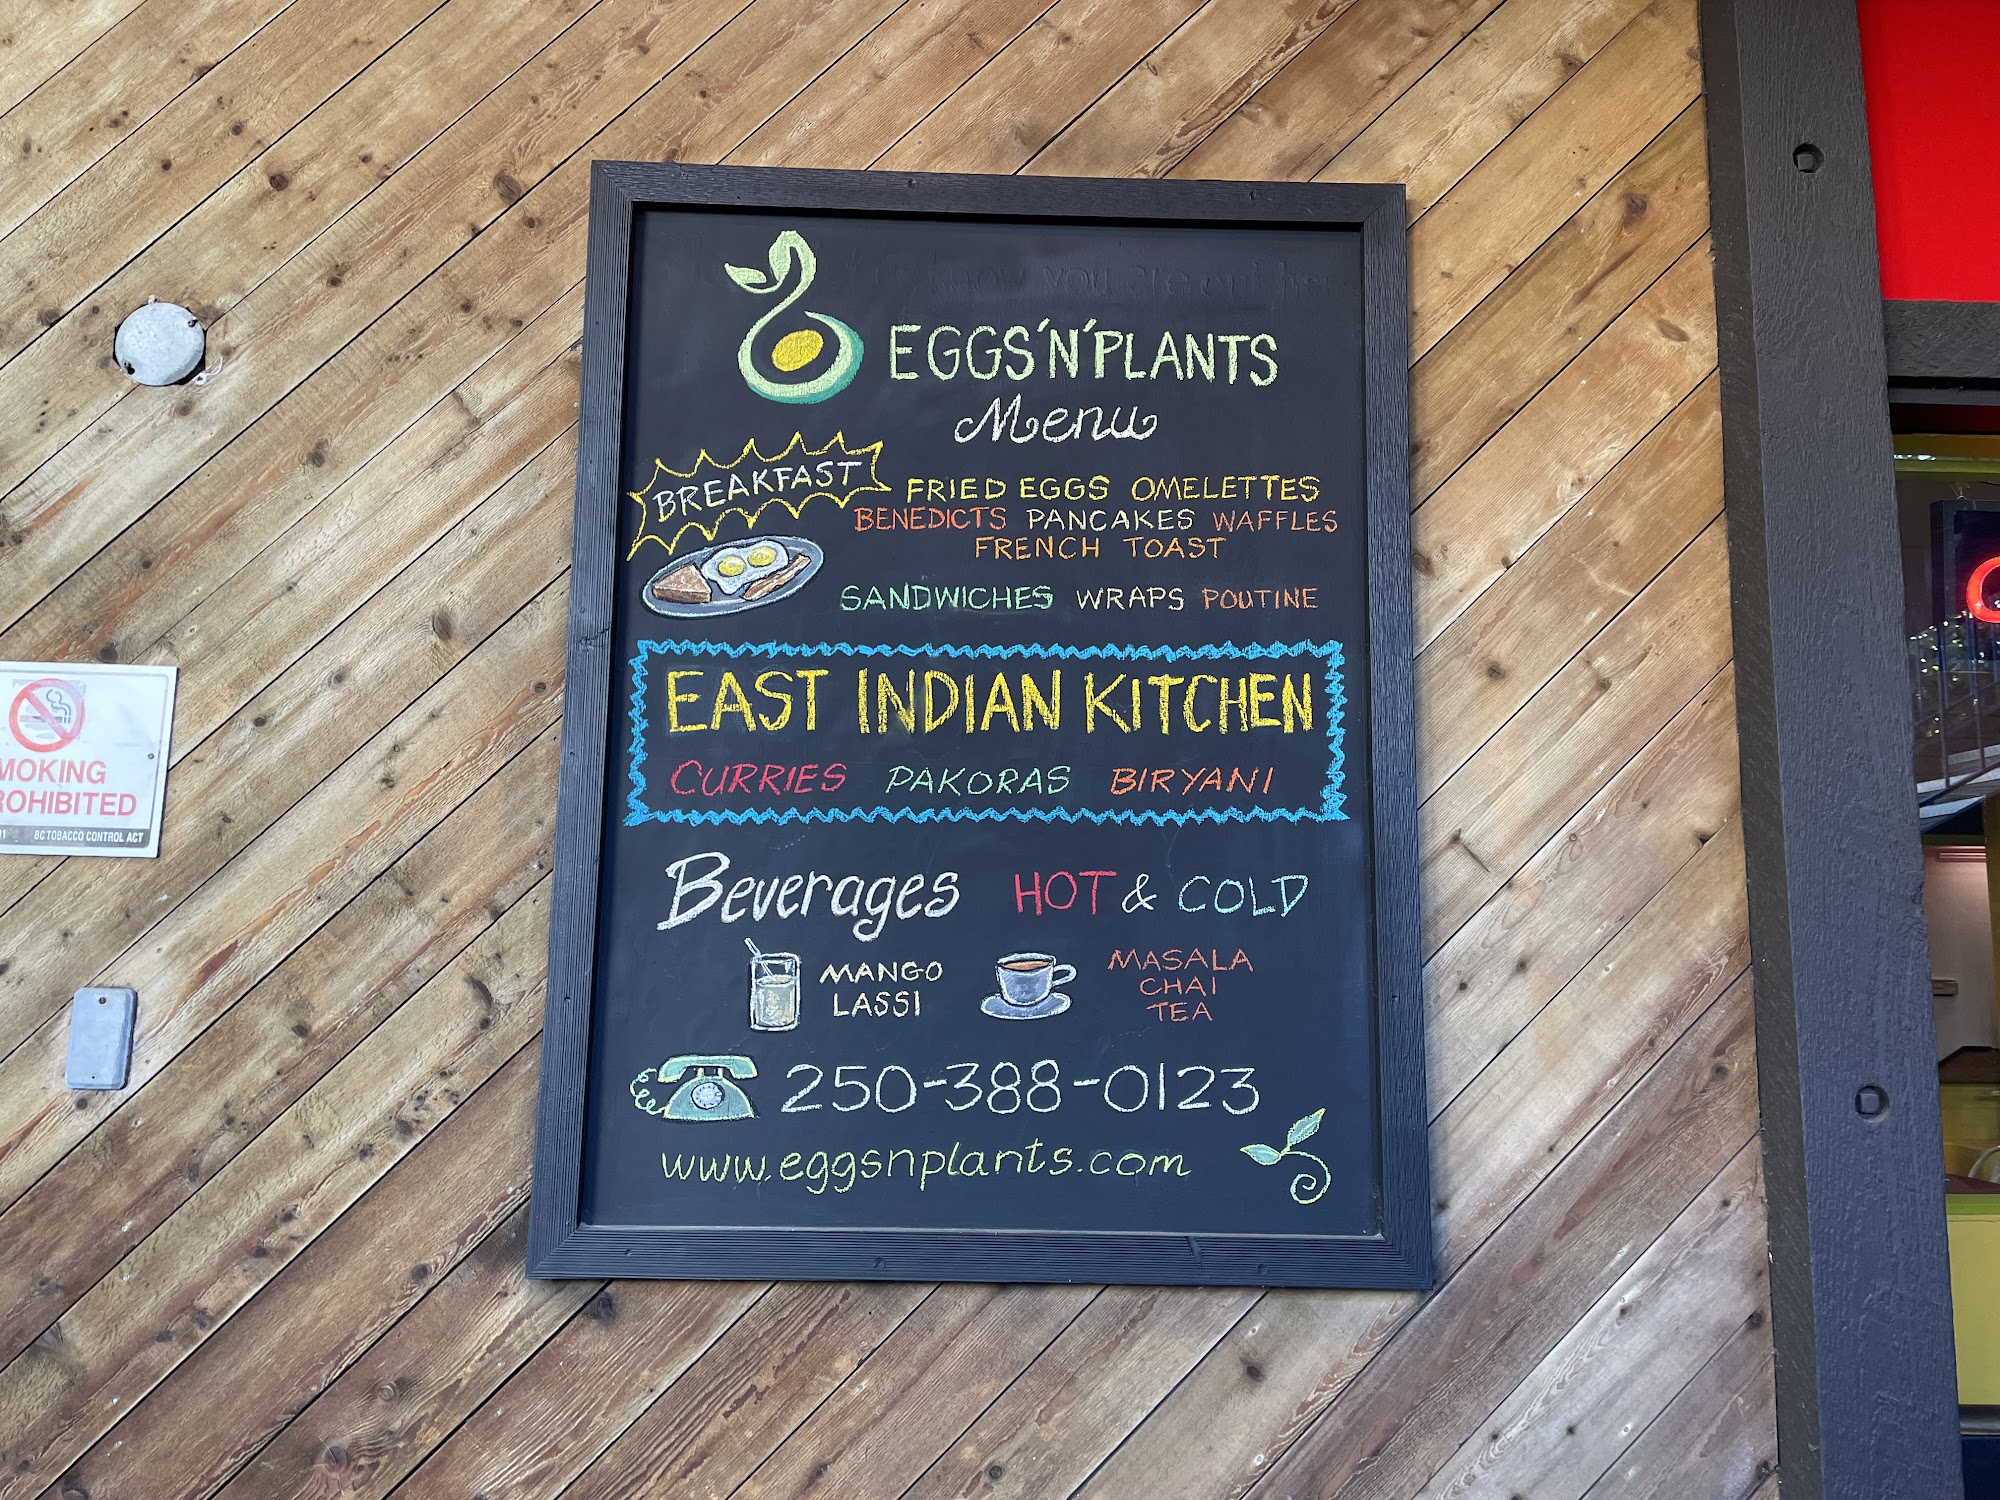 know you are
EGGS'N'PLANTS
Menu
BREAKFAST
FRIED EGGS OMELETTES
BENEDICTS PANCAKES WAFFLES
FRENCH TOAST
SANDWICHES WRAPS POUTINE
EAST INDIAN KITCHEN
CURRIES PAKORAS BIRYANI
Beverages HOT & COLD
MANGO
LASSI
MASALA
CHAI
TEA
250-388-0123
www.eggsnplants.com
MOKING
ROHIBITED
BC TOBACCO CONTROL ACT